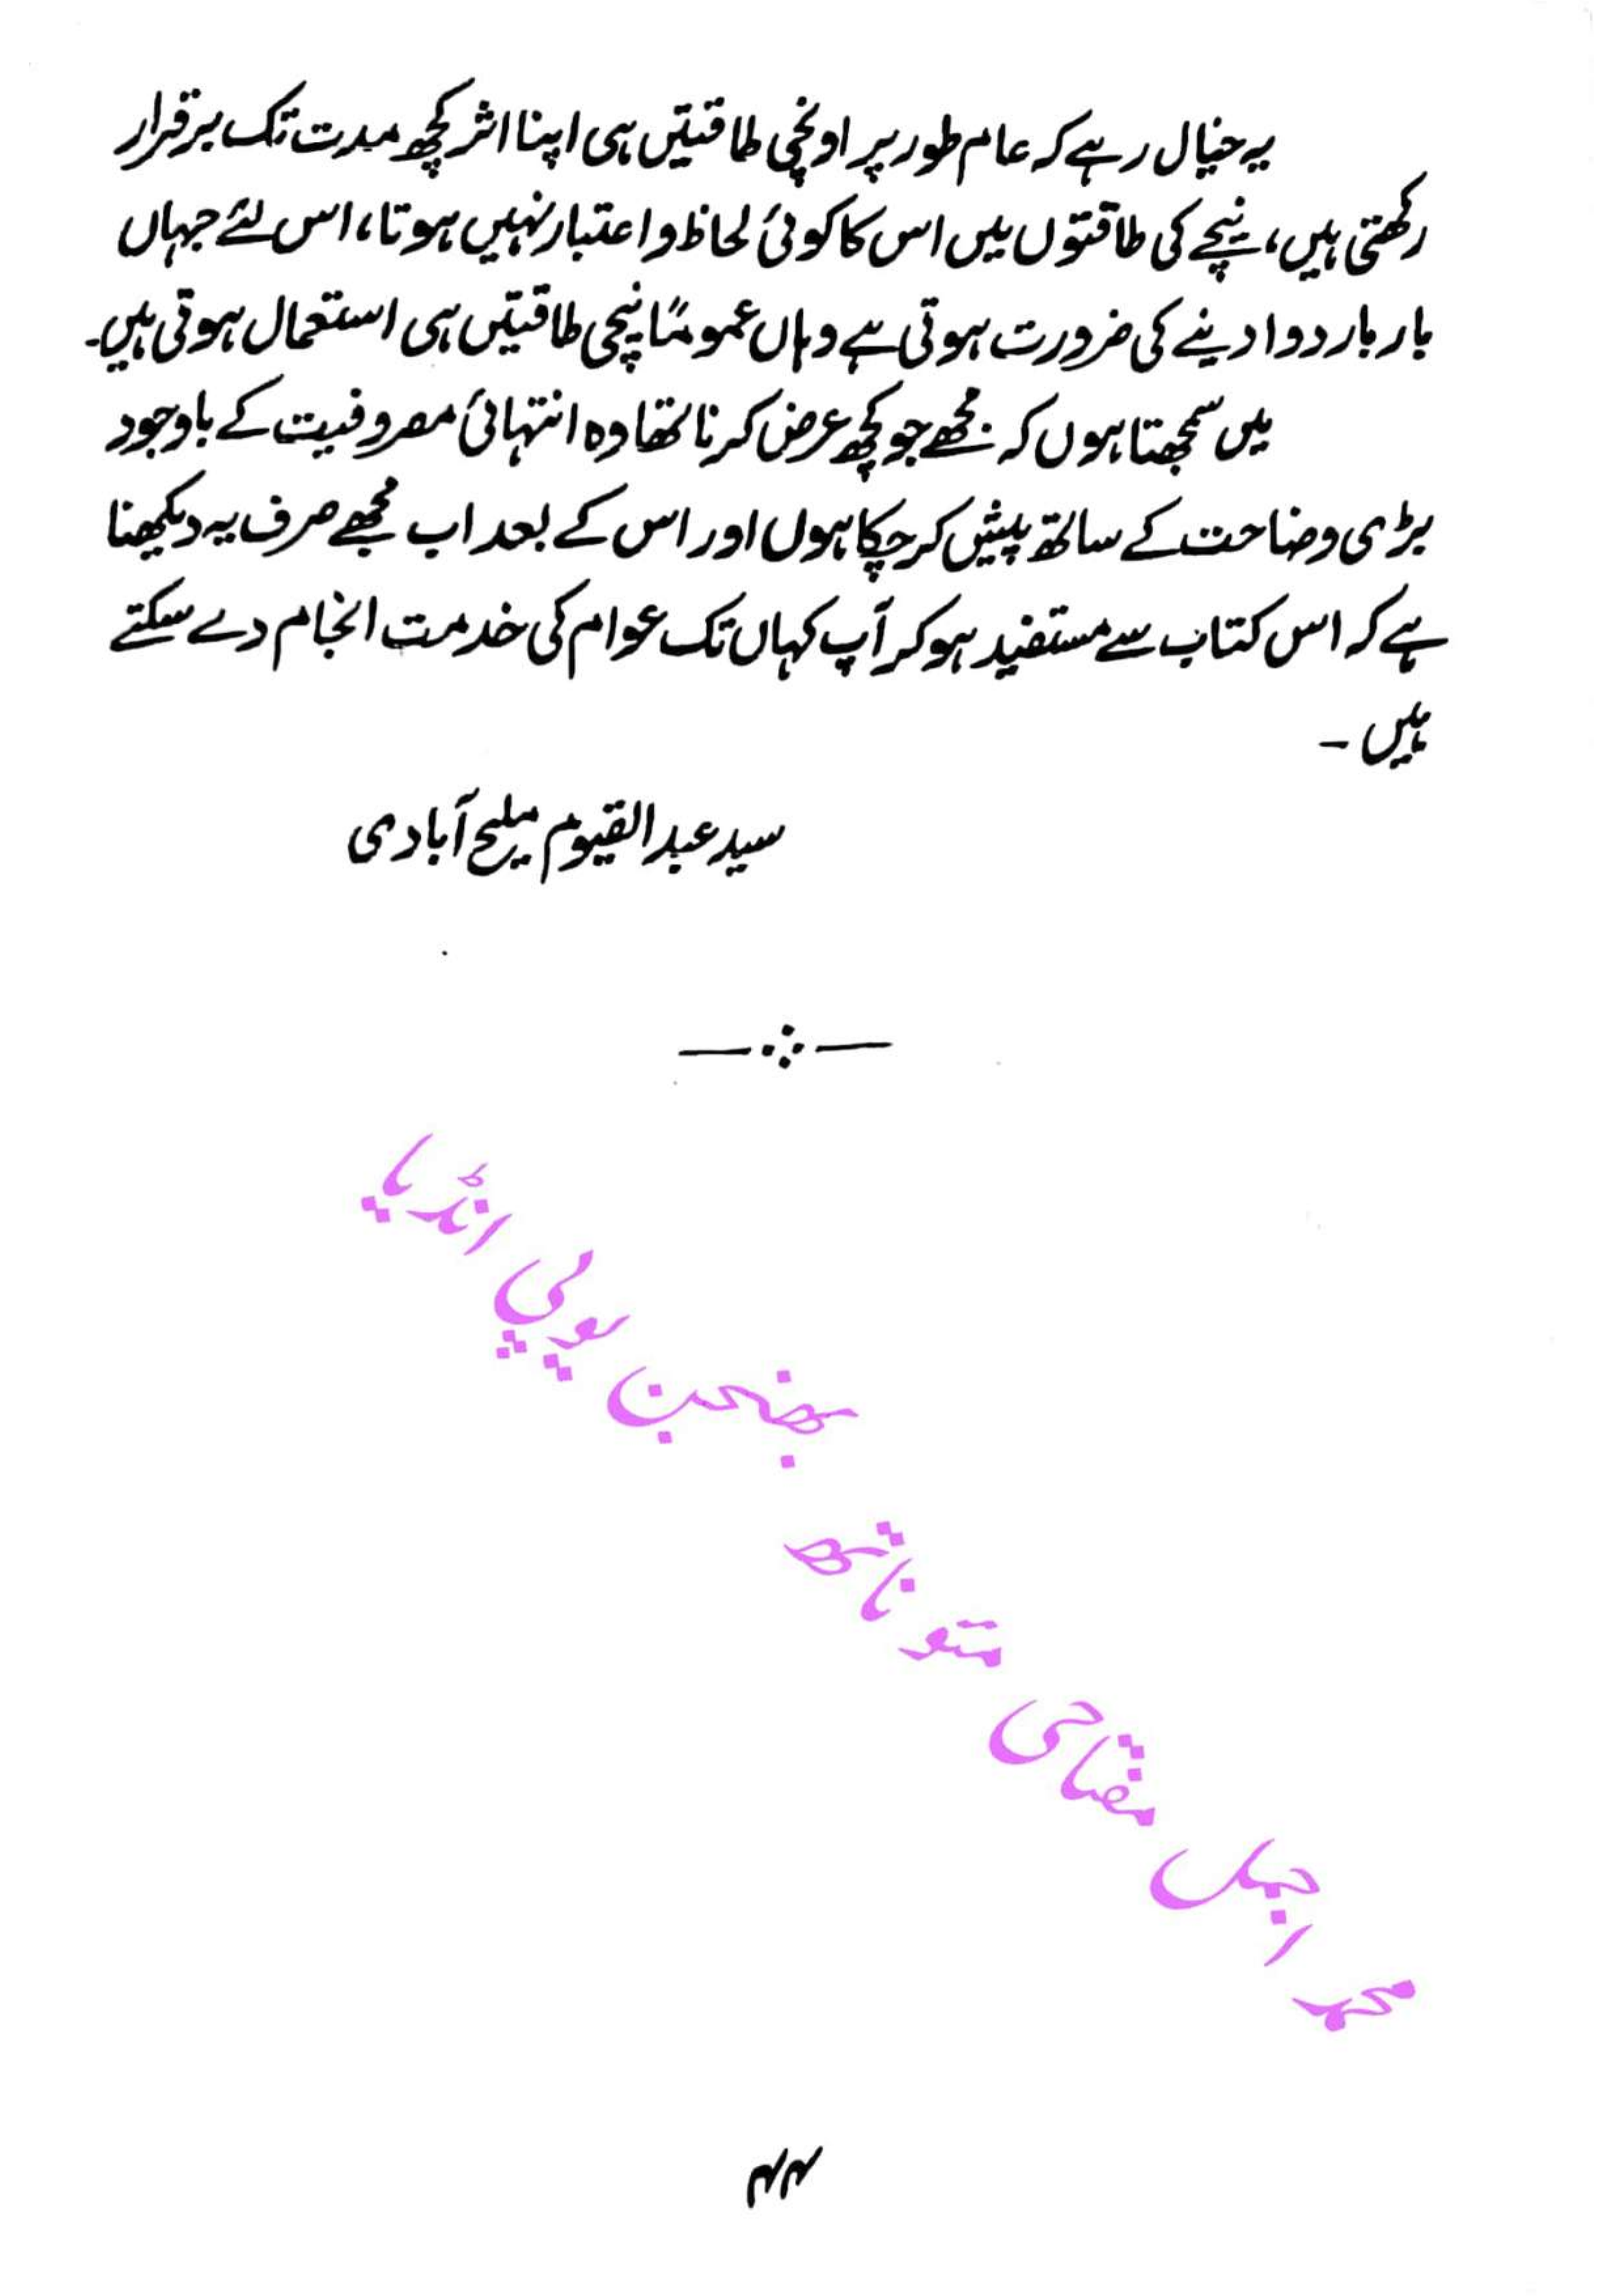 یہ خیال رہے کہ عام طور پر اونچی طاقتیں ہی اپنا اثر کچھ مدت تک برقرار
رکھتی ہیں، نیچے کی طاقتوں میں اس کا کوئی لحاظ و اعتبار نہیں ہوتا، اس لئے جہاں
بار بار دوا دینے کی ضرورت ہوتی ہے وہاں عموماً نیچی طاقتیں ہی استعمال ہوتی ہیں۔
میں سمجھتا ہوں کہ مجھے جو کچھ عرض کرنا تھا وہ انتہائی مصروفیت کے باوجود
بڑی وضاحت کے ساتھ پیش کر چکا ہوں اور اس کے بعد اب مجھے صرف یہ دیکھنا
ہے کہ اس کتاب سے مستفید ہو کر آپ کہاں تک عوام کی خدمت انجام دے سکتے
ہیں ۔
سید عبد القیوم ملیح آبادی
محمد اجمل مفتاحی مئو ناتھ بھنجن یوپی انڈیا
۴۴